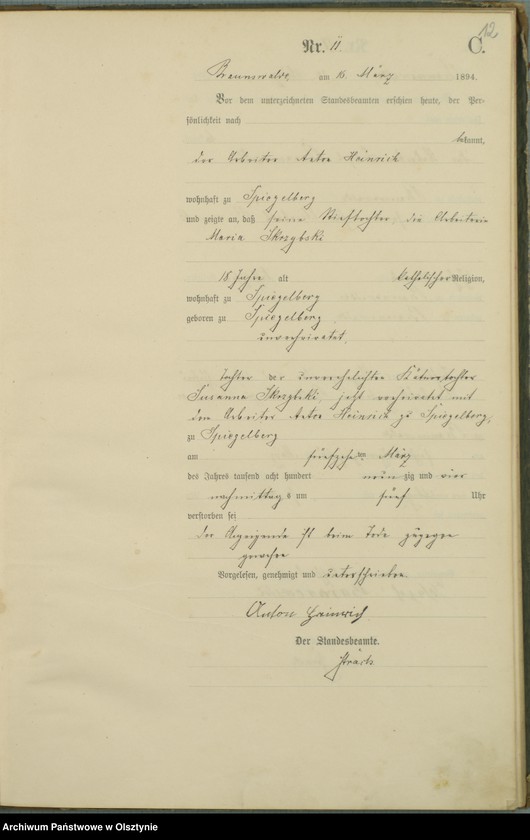 12
Nr. 11. C.
Braunswalde, am 16. März 1894.
Vor dem unterzeichneten Standesbeamten erschien heute, der Per-
sönlichkeit nach
bekannt,
der Arbeiter Anton Heinrich
wohnhaft zu Spiegelberg
und zeigte an, daß seine Stieftochter die Arbeiterin
Maria Skrzybski
18 Jahre alt katholischer Religion,
wohnhaft zu Spiegelberg
geboren zu Spiegelberg
unverheiratet,
Tochter der unverehelichten
Susanna Skrzybski, jetzt verheiratet mit
dem Arbeiter Anton Heinrich zu Spiegelberg,
zu Spiegelberg
am fünfzehnten März
des Jahres tausend acht hundert neunzig und vier
nachmittags um fünf Uhr
verstorben sei
der Anzeigende ist beim Tode zugegen
gewesen
Vorgelesen, genehmigt und unterschrieben
Anton Heinrich
Der Standesbeamte.
Archiwum Państwowe w Olsztynie